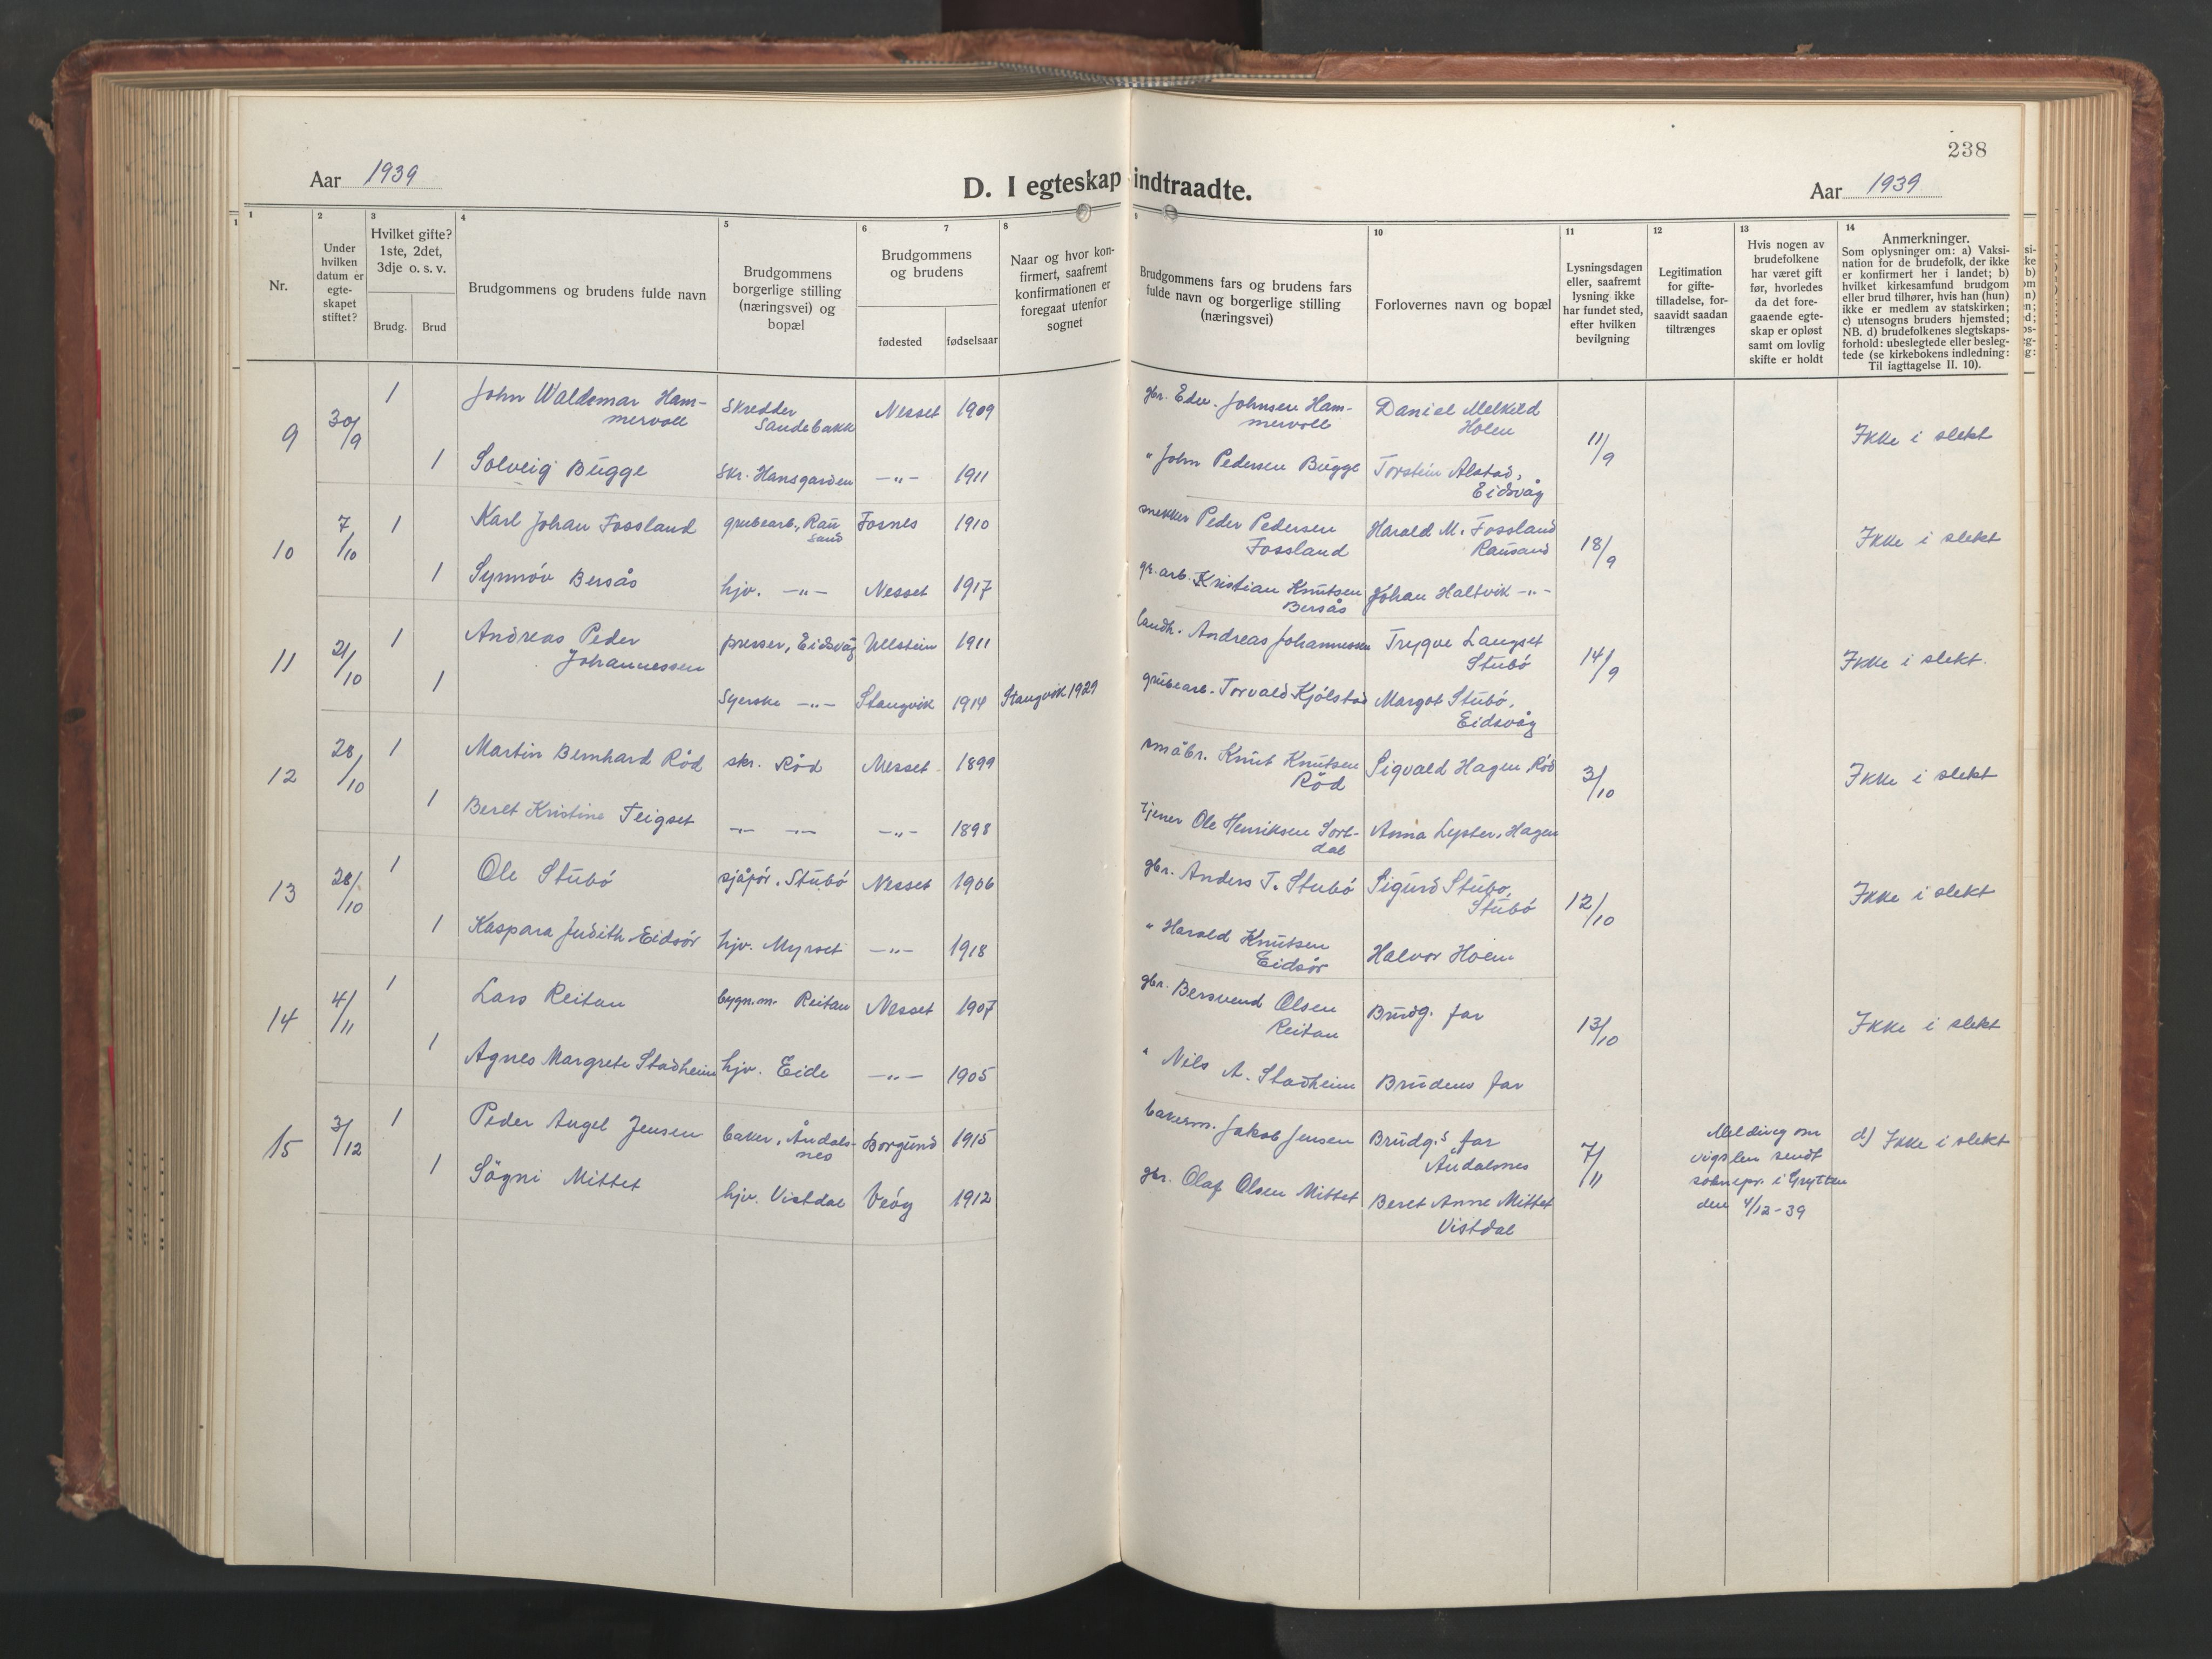 238
Aar 1939
D. I egteskap indtraadte.
Aar 1939
1
2
3
4
5
6
7
8
9
10
11
12
13
14
Nr.
Under hvilken datum er egteskapet stiftet?
Hvilket gifte? 1ste, 2det, 3dje o. s. v.
Brudg.
Brud
Brudgommens og brudens fulde navn
Brudgommens borgerlige stilling (næringsvei) og bopæl
Brudgommens og brudens
fødested
fødselsaar
Naar og hvor konfirmert, saafremt konfirmationen er foregaat utenfor sognet
Brudgommens fars og brudens fars fulde navn og borgerlige stilling (næringsvei)
Forlovernes navn og bopæl
Lysningsdagen eller, saafremt lysning ikke har fundet sted, efter hvilken bevilgning
Legitimation for giftetilladelse, forsaavidt saadan tiltrænges
Hvis nogen av brudefolkene har været gift før, hvorledes da det foregaaende egteskap er opløst samt om lovlig skifte er holdt
Anmerkninger.
Som oplysninger om: a) Vaksination for de brudefolk, der ikke er konfirmert her i landet; b) hvilket kirkesamfund brudgom eller brud tilhører, hvis han (hun) ikke er medlem av statskirken; c) utensogns bruders hjemsted; NB. d) brudefolkenes slegtskapsforhold: ubeslegtede eller beslegtede (se kirkebokens indledning: Til iagttagelse II. 10).
9 30/9 1 John Waldemar Hammervoll Skredder Sandebakk Nesset 1909 gbr. Edv. Johnsen Hammervoll Daniel Melkild Holen 11/9 Ikke i slekt
1 Solveig Bugge Skr. Hansgarden -"- 1911 " John Pedersen Bugge Torstein Alstad, Eidsvåg
10 7/10 1 Karl Johan Fossland grubearb., Rausand Fosnes 1910 snekker Peder Pedersen Fossland Harald M. Fossland Rausand 18/9 Ikke i slekt
1 Synnøv Bersås hjv. -"- Nesset 1917 gr.arb. Kristian Knutsen Bersås Johan Haltvik -"-
11 21/10 1 Andreas Peder Johannessen presser, Eidsvåg Ullstein 1911 landh. Andreas Johannessen Trygve Langset Stubö 14/9 Ikke i slekt.
1 Syerske -"- Stangvik 1914 Stangvik 1929 grubearb. Torvald Kjölstad Margot Stubö, Eidsvåg
12 28/10 1 Martin Bernhard Röd skr. Röd Nesset 1899 småbr. Knut Knutsen Röd Sigvald Hagen Röd 3/10 Ikke i slekt
1 Beret Kristine Teigset -"- -"- -"- 1898 tjener Ole Henriksen Tortdal Anna Lyster, Hagen
13 28/10 1 Ole Stubö sjåför, Stubö Nesset 1906 gbr. Anders T. Stubö Sigurd Stubo, Stubö 12/10 Ikke i slekt
1 Kaspara Judith Eidsör hjv. Myrset -"- 1918 " Harald Knutsen Eidsör Halvor Hoem
14 4/11 1 Lars Reitan bygn.m. Reitan Nesset 1907 gbr. Bersvend Olsen Reitan Brudg. far 13/10 Ikke i slekt
1 Agnes Margrete Stadheim hjv. Eide -"- 1905 " Nils A. Stadheim Brudens far
15 3/12 1 Peder Angel Jensen baker, Åndalsnes Borgund 1915 bakerm. Jakob Jensen Brudg.s far Åndalsnes 7/11 Melding om vigslen sendt soknepr. i Grytten den 4/12-39 d) Ikke i slekt
1 Sögni Mittet hjv. Vistdal Veöy 1912 gbr. Olaf Olsen Mittet Beret Anne Mittet Vistdal